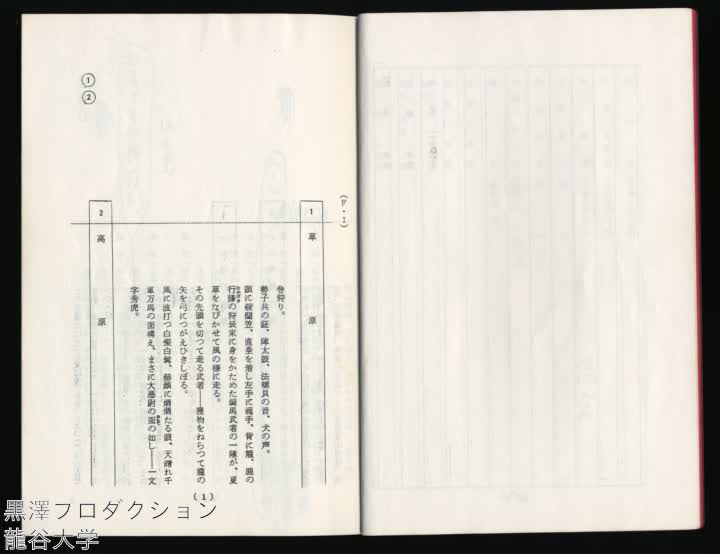 (F・I)
1 草原
巻狩り。
勢子共の鉦、陣太鼓、法螺貝の音、犬の声。
頭に綾藺笠、直垂を着し左手に弓手、背に箙、鹿の
行縢の狩装束に身をかためた騎馬武者の一隊が、夏
草をなびかせて風の様に走る。
その先頭を切つて走る武者――獲物をねらつて箙の
矢を弓につがえひきしぼる。
風に波打つ白髪白髯、赫顔に爛爛たる眼、天晴れ千
軍万馬の面構え、まさに大悪尉の面の如し――一文
字秀虎。
2 高原
①
②
(1)
黒澤プロダクション
龍谷大学